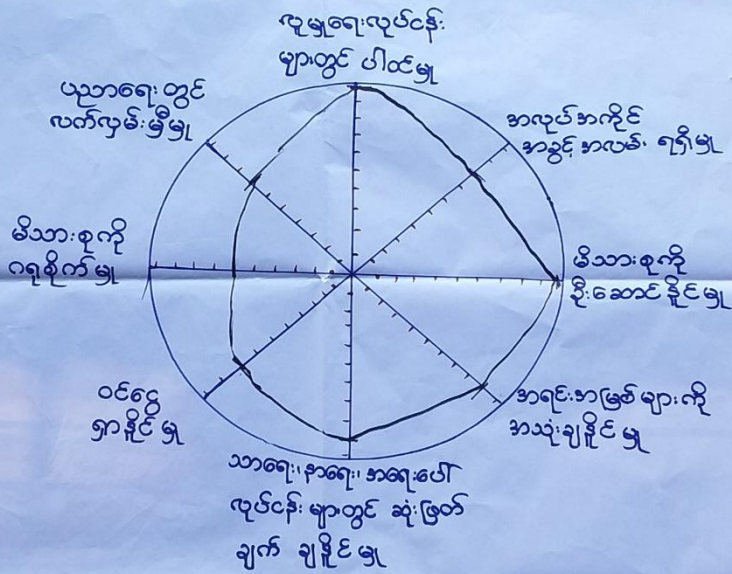 လူမှုရေးလုပ်ငန်း
များတွင် ပါဝင်မှု
အလုပ်အကိုင်
အခွင့်အလမ်း ရရှိမှု
မိသားစုကို
ဦးဆောင်နိုင်မှု
အရင်းအမြစ်များကို
အသုံးချနိုင်မှု
သာရေး၊နာရေး၊အရေးပေါ်
လုပ်ငန်းများတွင် ဆုံးဖြတ်
ချက် ချနိုင်မှု
ဝင်ငွေ
ရှာနိုင်မှု
မိသားစုကို
ဂရုစိုက်မှု
ပညာရေးတွင်
လက်လှမ်းမှီမှု